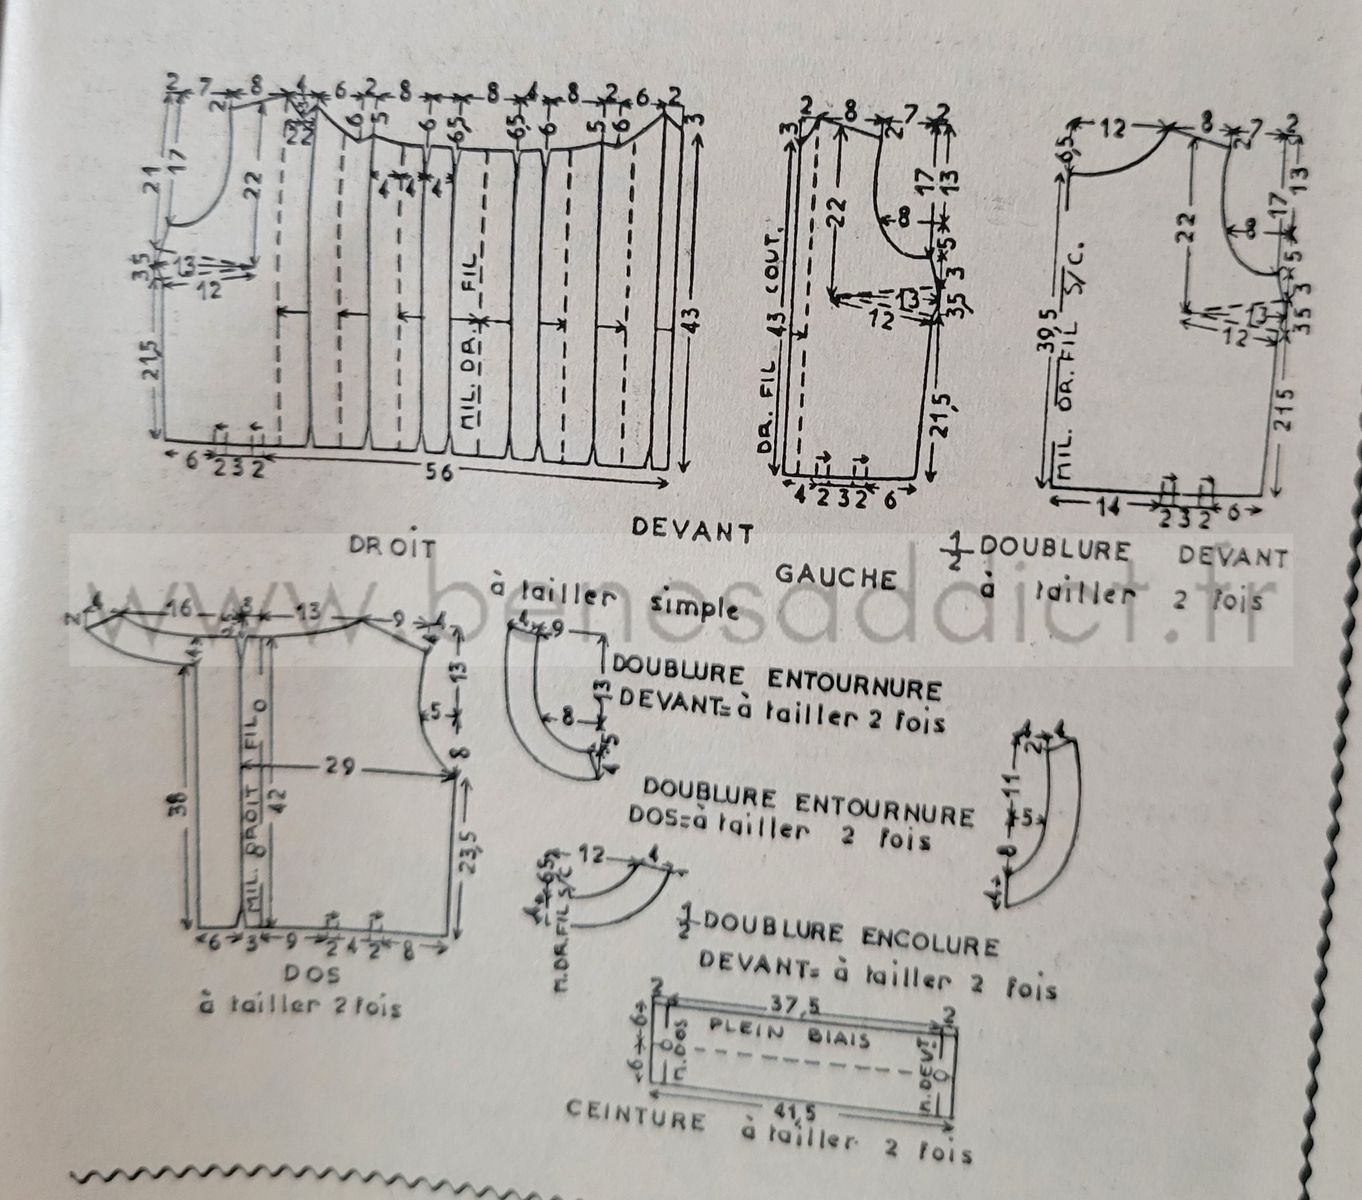 2 7 8 4 6 2 8 8 4 8 2 6 2
2 6 5 6 6,5 6,5 6 5 6 3
21 17 22 22 4 4 4
35 13 12
21,5 MIL. DR. FIL 43
6 2 3 2 56
2 8 7 2
3 2 17 13 22 8 5 3
DR. FIL 43 COUT.
13 12 35,
21,5
4 2 3 2 6
12 8 7 2
6,5 2 17 13 22 8 5 3
39,5 MIL. DR. FIL S/C.
13 12 35
215
14 2 3 2 6
DEVANT
DROIT
GAUCHE
à tailler simple
1/2 DOUBLURE DEVANT
à tailler 2 fois
www.benesaddict.fr
2 4 16 13 9 4
4 13 5 8
38 MIL. DROIT FIL 42 29 23,5
6 3 9 2 4 2 8
DOS
à tailler 2 fois
4 9 13 8 5 4
DOUBLURE ENTOURNURE
DEVANT= à tailler 2 fois
4 4 2 11 5 8 4
DOUBLURE ENTOURNURE
DOS=à tailler 2 fois
12 4 6,5 4
M.DR.FIL S/C
1/2 DOUBLURE ENCOLURE
DEVANT= à tailler 2 fois
2 37,5 2
6 6 M. DOS PLEIN BIAIS M. DEVT
41,5
CEINTURE à tailler 2 fois